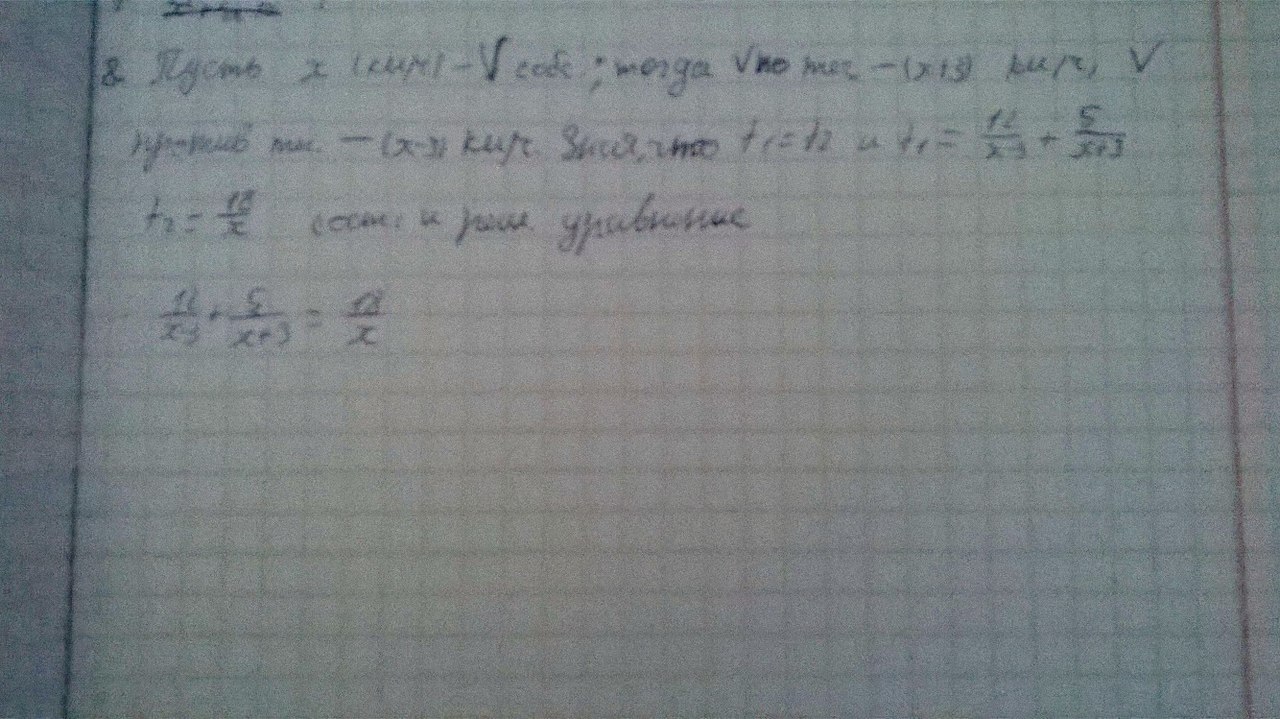 8. Пусть x (км/ч) - V собс; тогда V по теч - (x+3) км/ч, V
против теч. - (x-3) км/ч. Зная, что t₁=t₂ и t₁ = 12/(x-3) + 5/(x+3)
t₂ = 18/x сост. и реш. уравнение
12/(x-3) + 5/(x+3) = 18/x